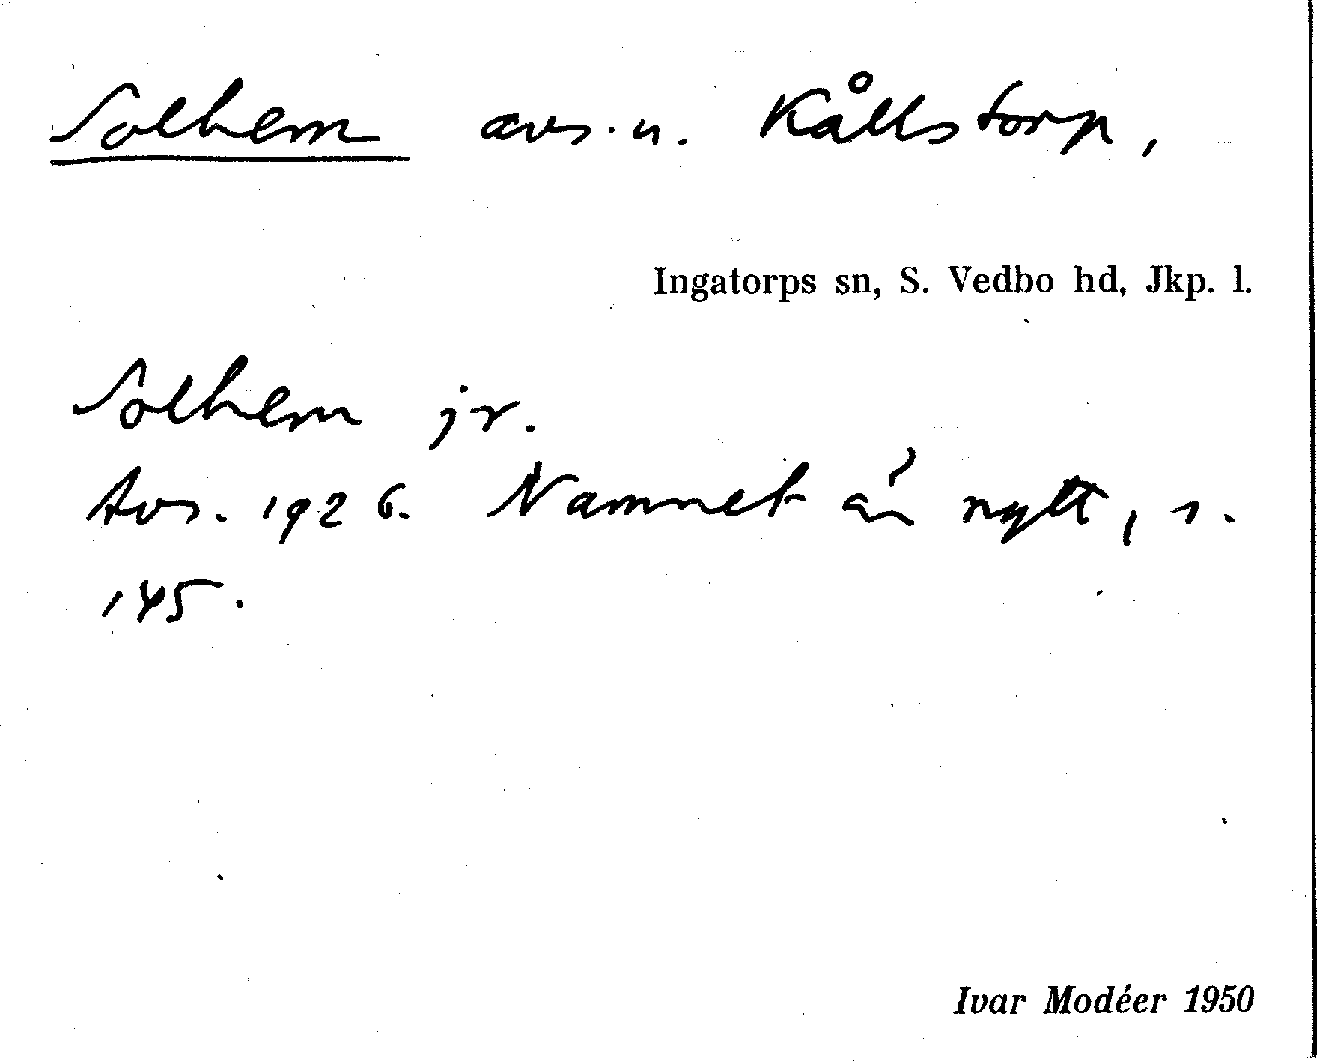 Solhem avs. u. Kållstorp,
Ingatorps sn, S. Vedbo hd, Jkp. l.
Solhem jr.
Avs. 1926. Namnet är nytt, s.
145.
Ivar Modéer 1950